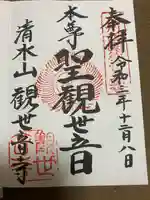 奉拝 令和三年十二月八日
本尊
聖觀世音
清水山 觀世音寺